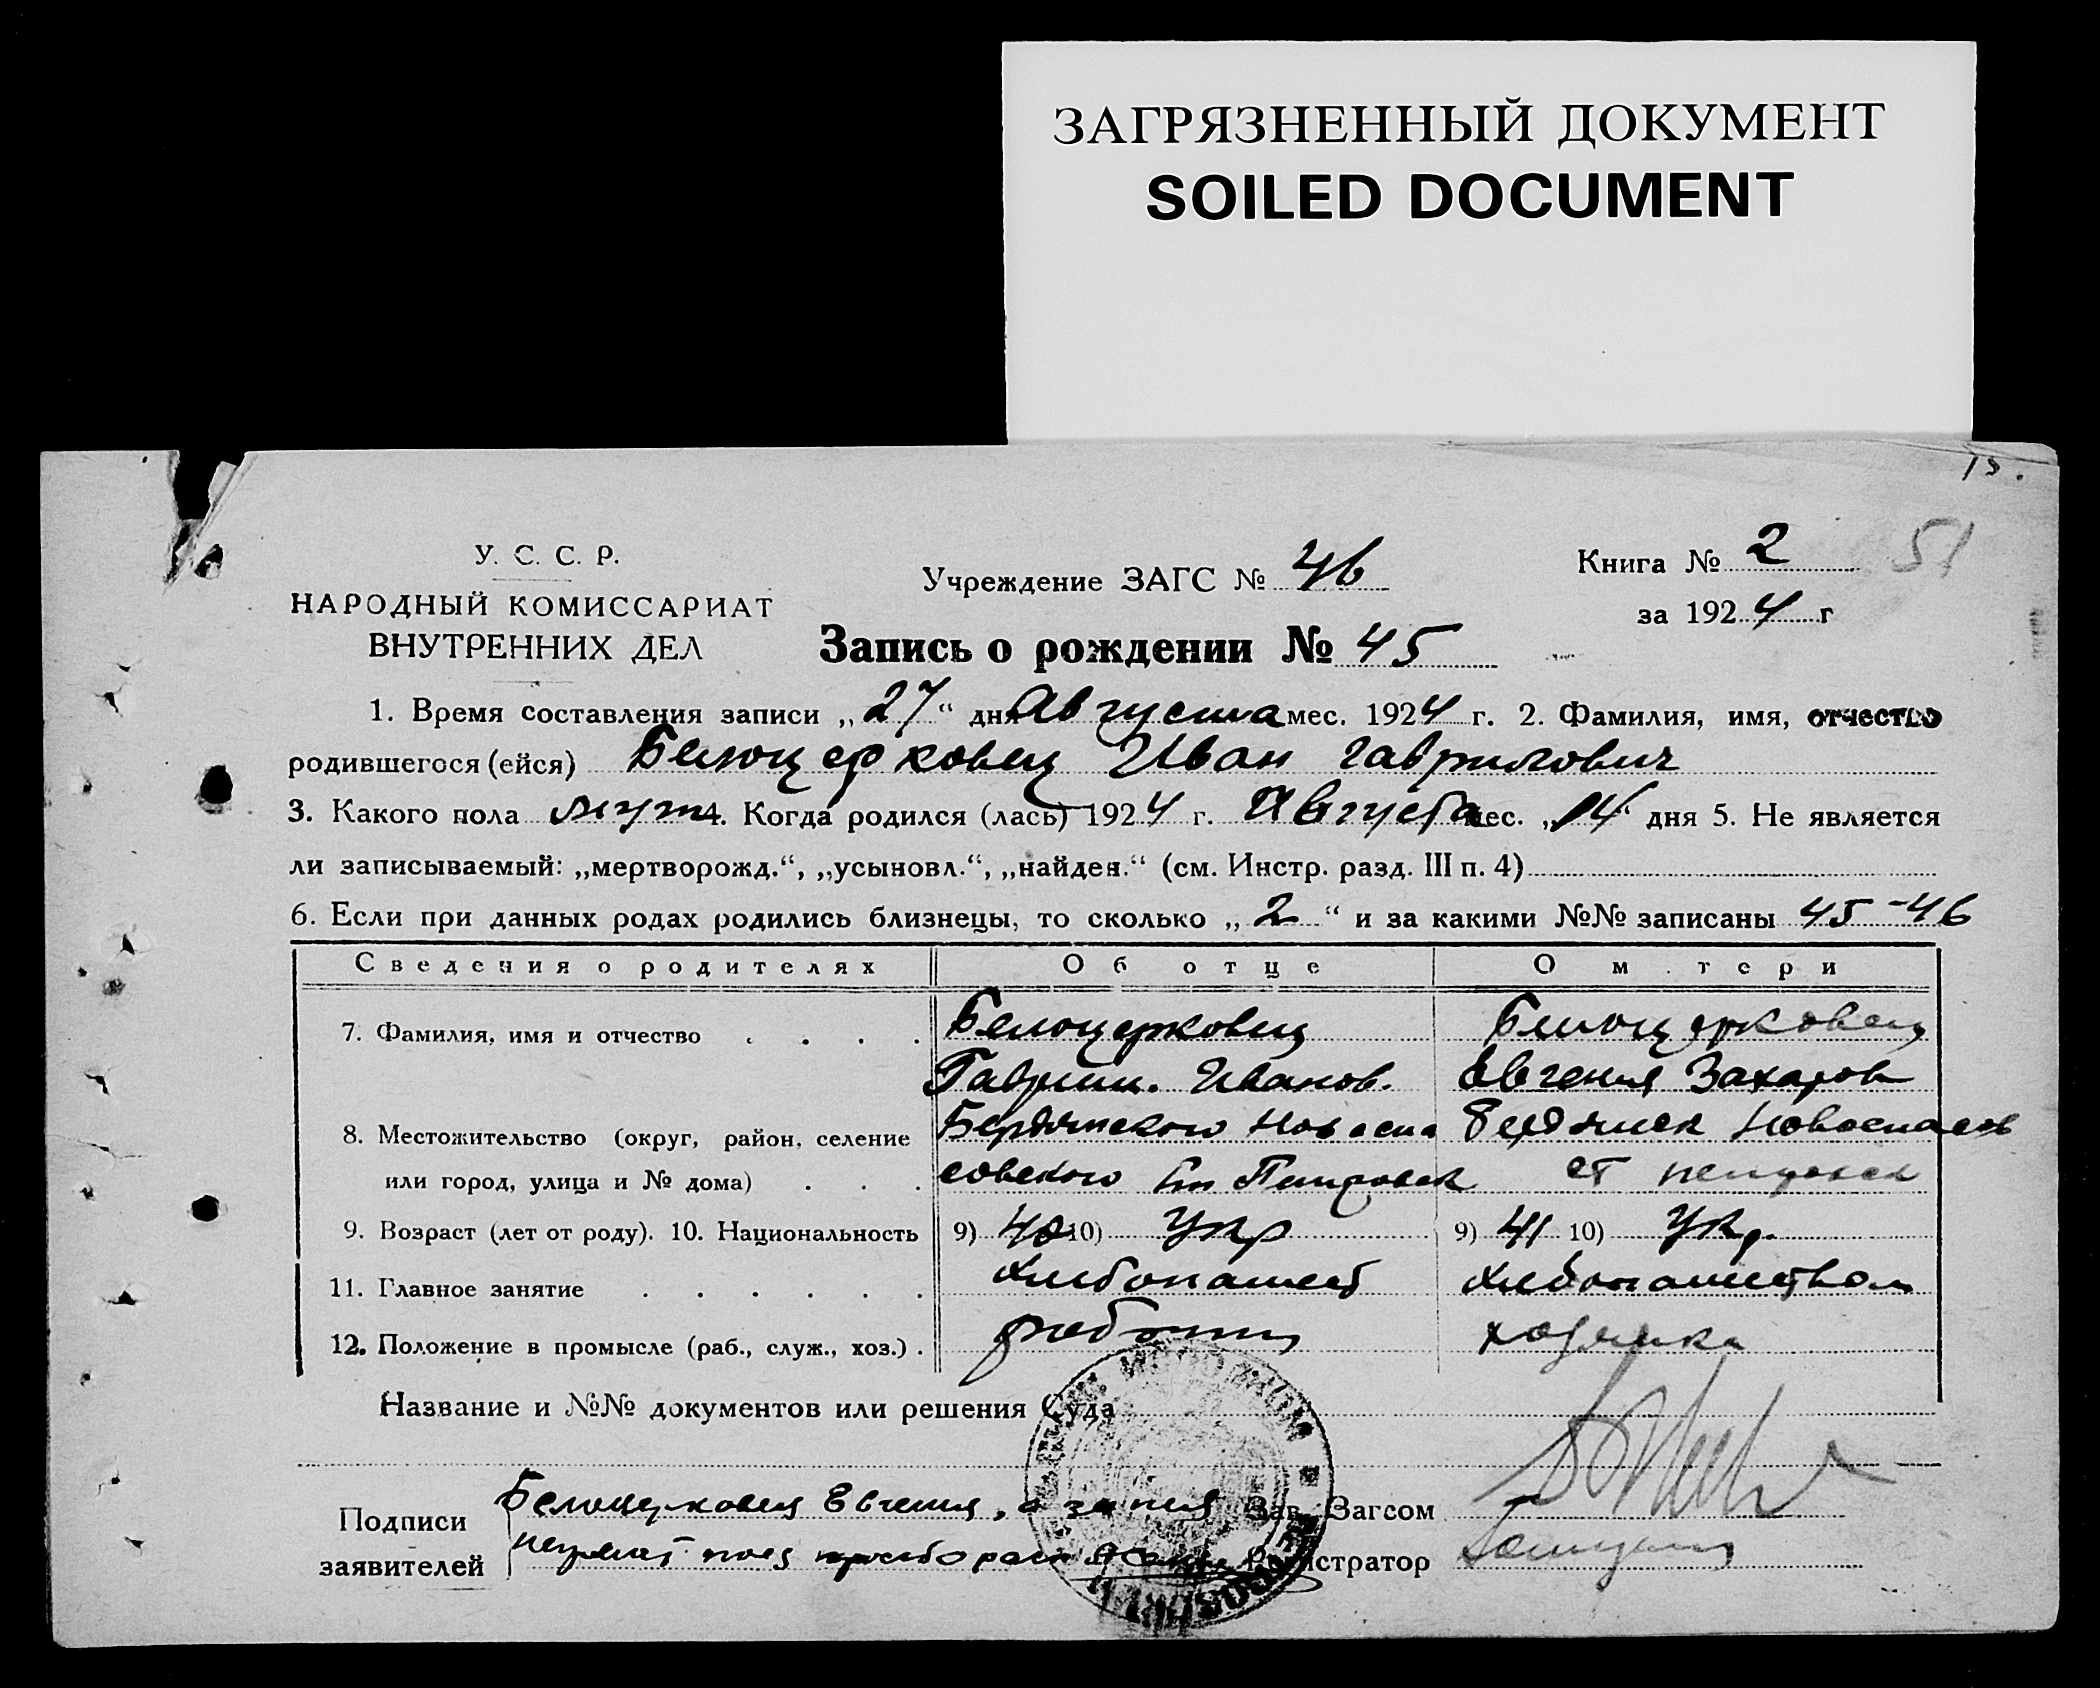 ЗАГРЯЗНЕННЫЙ ДОКУМЕНТ
SOILED DOCUMENT
51
У. С. С. Р.
НАРОДНЫЙ КОМИССАРИАТ
ВНУТРЕННИХ ДЕЛ
Учреждение ЗАГС № 46
Книга № 2
за 1924 г
Запись о рождении № 45
1. Время составления записи „27“ дня Августа мес. 1924 г. 2. Фамилия, имя, отчество
родившегося (ейся) Белоцерковец Иван Гаврилович
3. Какого пола муж 4. Когда родился (лась) 1924 г. Августа мес. „14“ дня 5. Не является
ли записываемый: „мертворожд.“, „усыновл.“, „найден.“ (см. Инстр. разд. III п. 4)
6. Если при данных родах родились близнецы, то сколько „2“ и за какими №№ записаны 45-46
Сведения о родителях Об отце О м тери
7. Фамилия, имя и отчество Белоцерковец Белоцерковец
Гаврил. Иванов. Евгения Захаров
8. Местожительство (округ, район, селение Бердянского Новоспа Бердянск Новоспасов
или город, улица и № дома) совского ст Петровск ст петровск
9. Возраст (лет от роду). 10. Национальность 9) 42 10) Укр 9) 41 10) Укр.
11. Главное занятие Хлебопашеств Хлебопашеством
12. Положение в промысле (раб., служ., хоз.) хозяйка
Название и №№ документов или решения Суда
Подписи Белоцерковец Евгения, а за нея Зав. Загсом
заявителей неграмот. по ея просьбе расп Регистратор